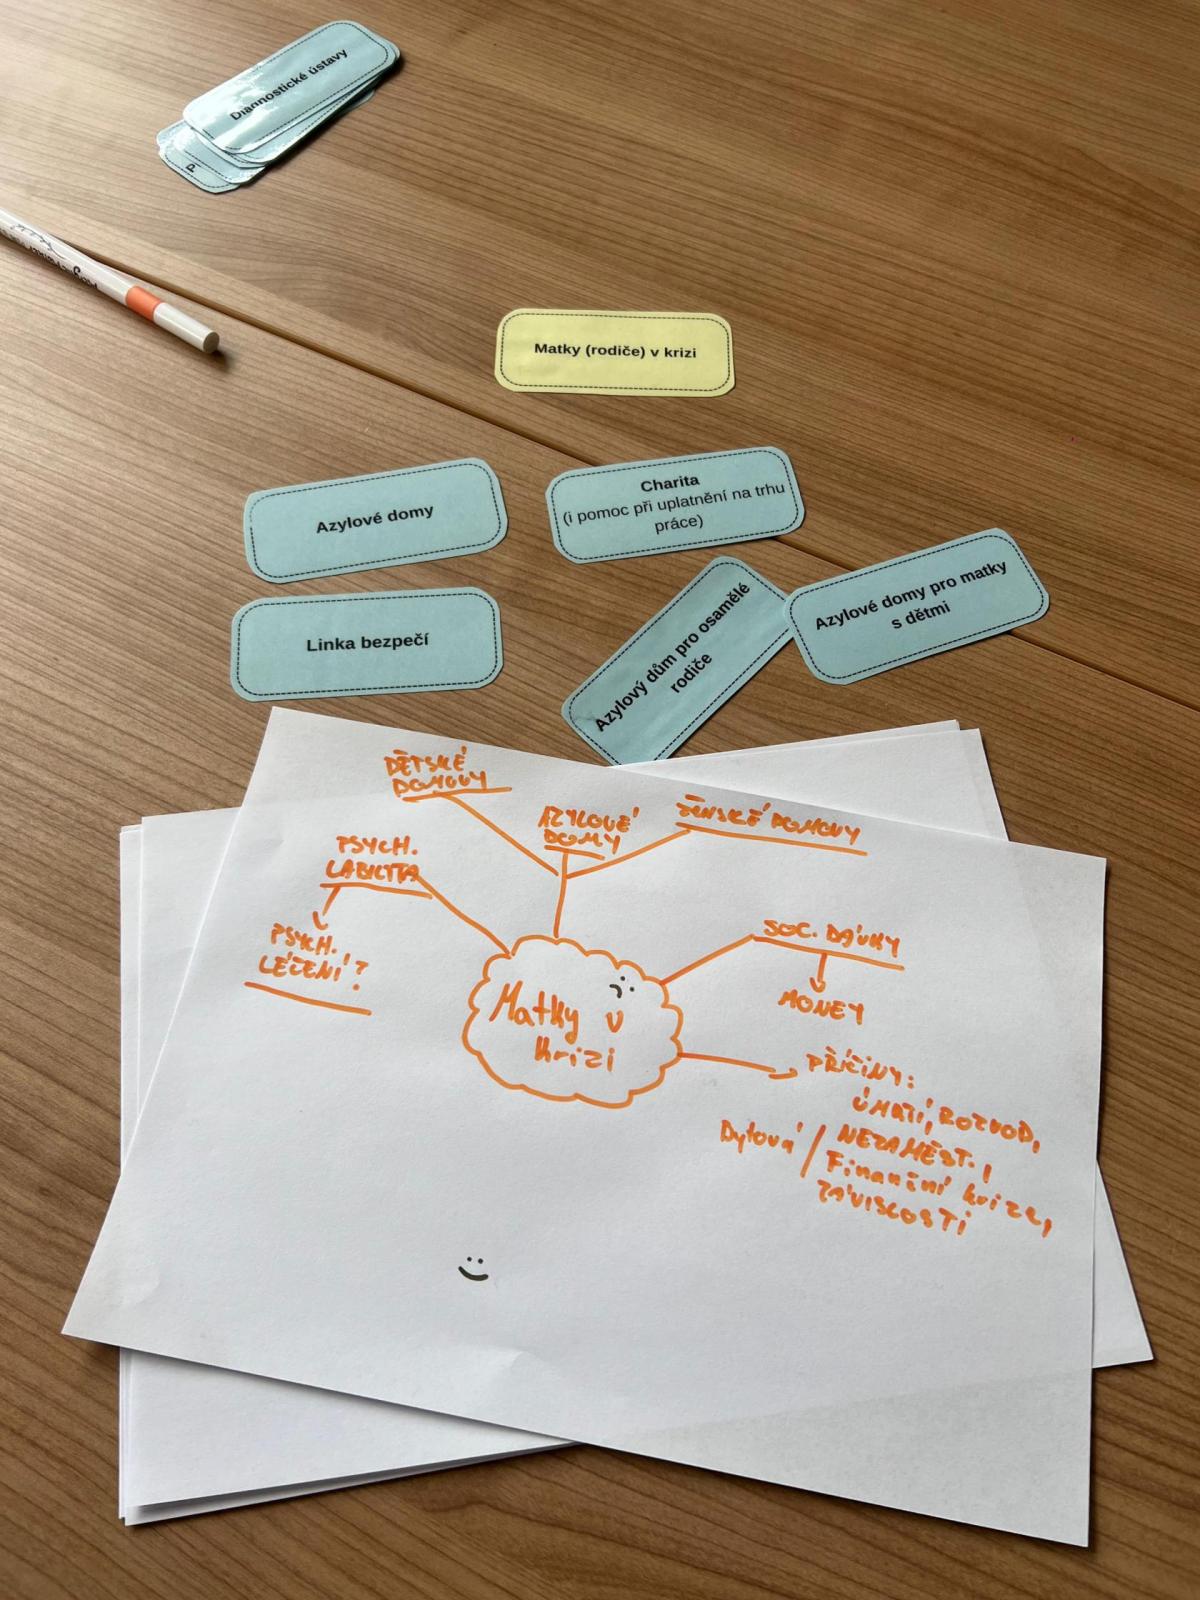 Diagnostické ústavy
P
Matky (rodiče) v krizi
Azylové domy
Charita
(i pomoc při uplatnění na trhu
práce)
Linka bezpečí
Azylový dům pro osamělé
rodiče
Azylové domy pro matky
s dětmi
DĚTSKÉ
DOMOVY
AZYLOVÉ
DOMY
ŽENSKÉ DOMOVY
PSYCH.
LABILITA
PSYCH.
LÉČENÍ?
SOC. DÁVKY
MONEY
Matky v
krizi
PŘÍČINY:
ÚMRTÍ, ROZVOD,
Bytová / NEZAMĚST.,
Finanční krize,
ZÁVISLOSTI